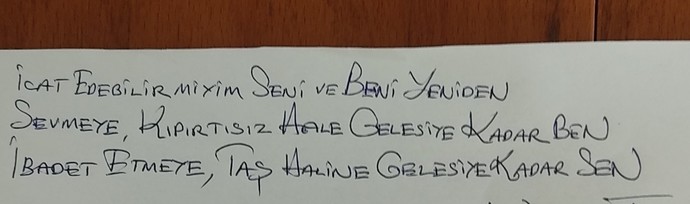 İCAT EDEBİLİR MİYİM SENİ VE BENİ YENİDEN
SEVMEYE, KIPIRTISIZ HALE GELESİYE KADAR BEN
İBADET ETMEYE, TAŞ HALİNE GELESİYE KADAR SEN